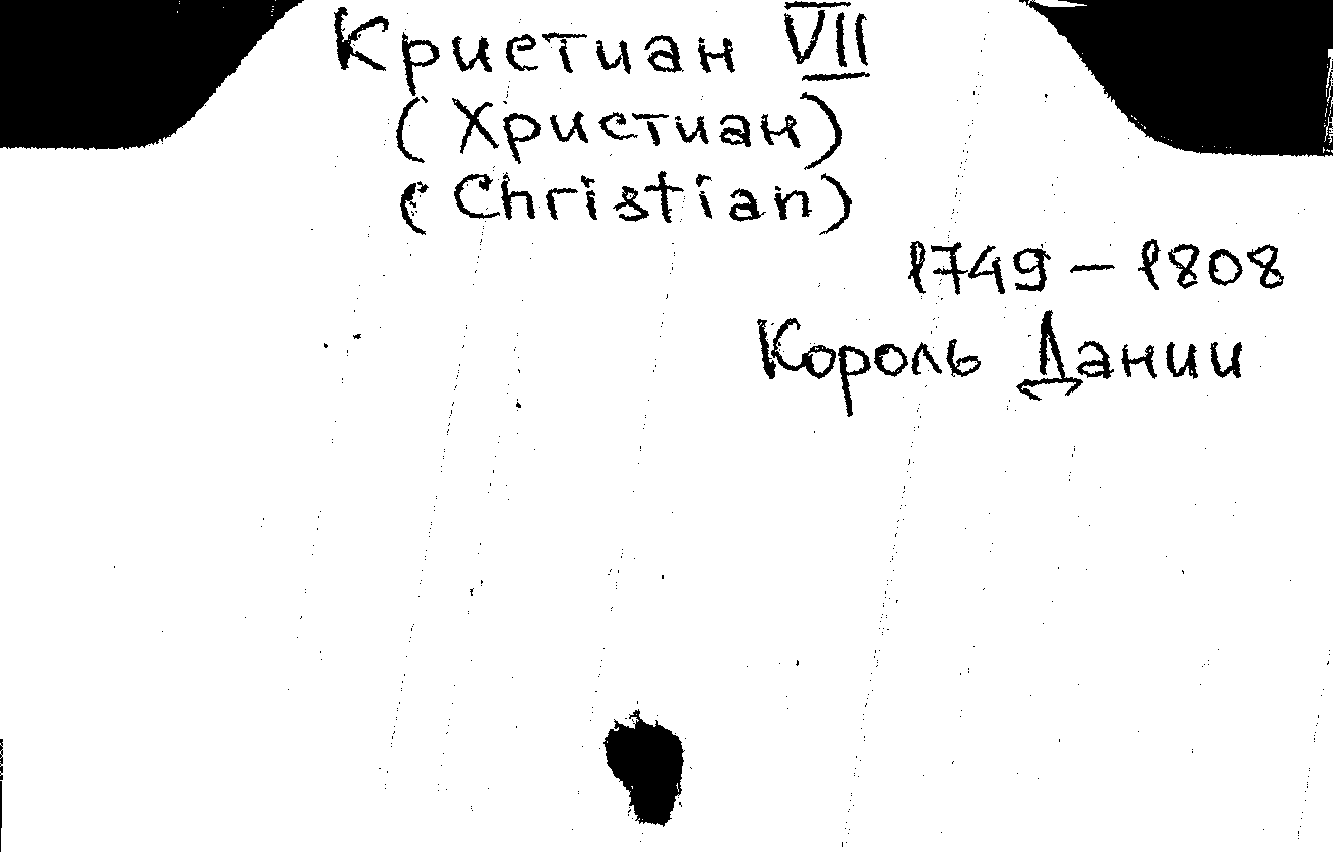 Кристиан VII
(Христиан)
(Christian)
1749 – 1808
Король Дании